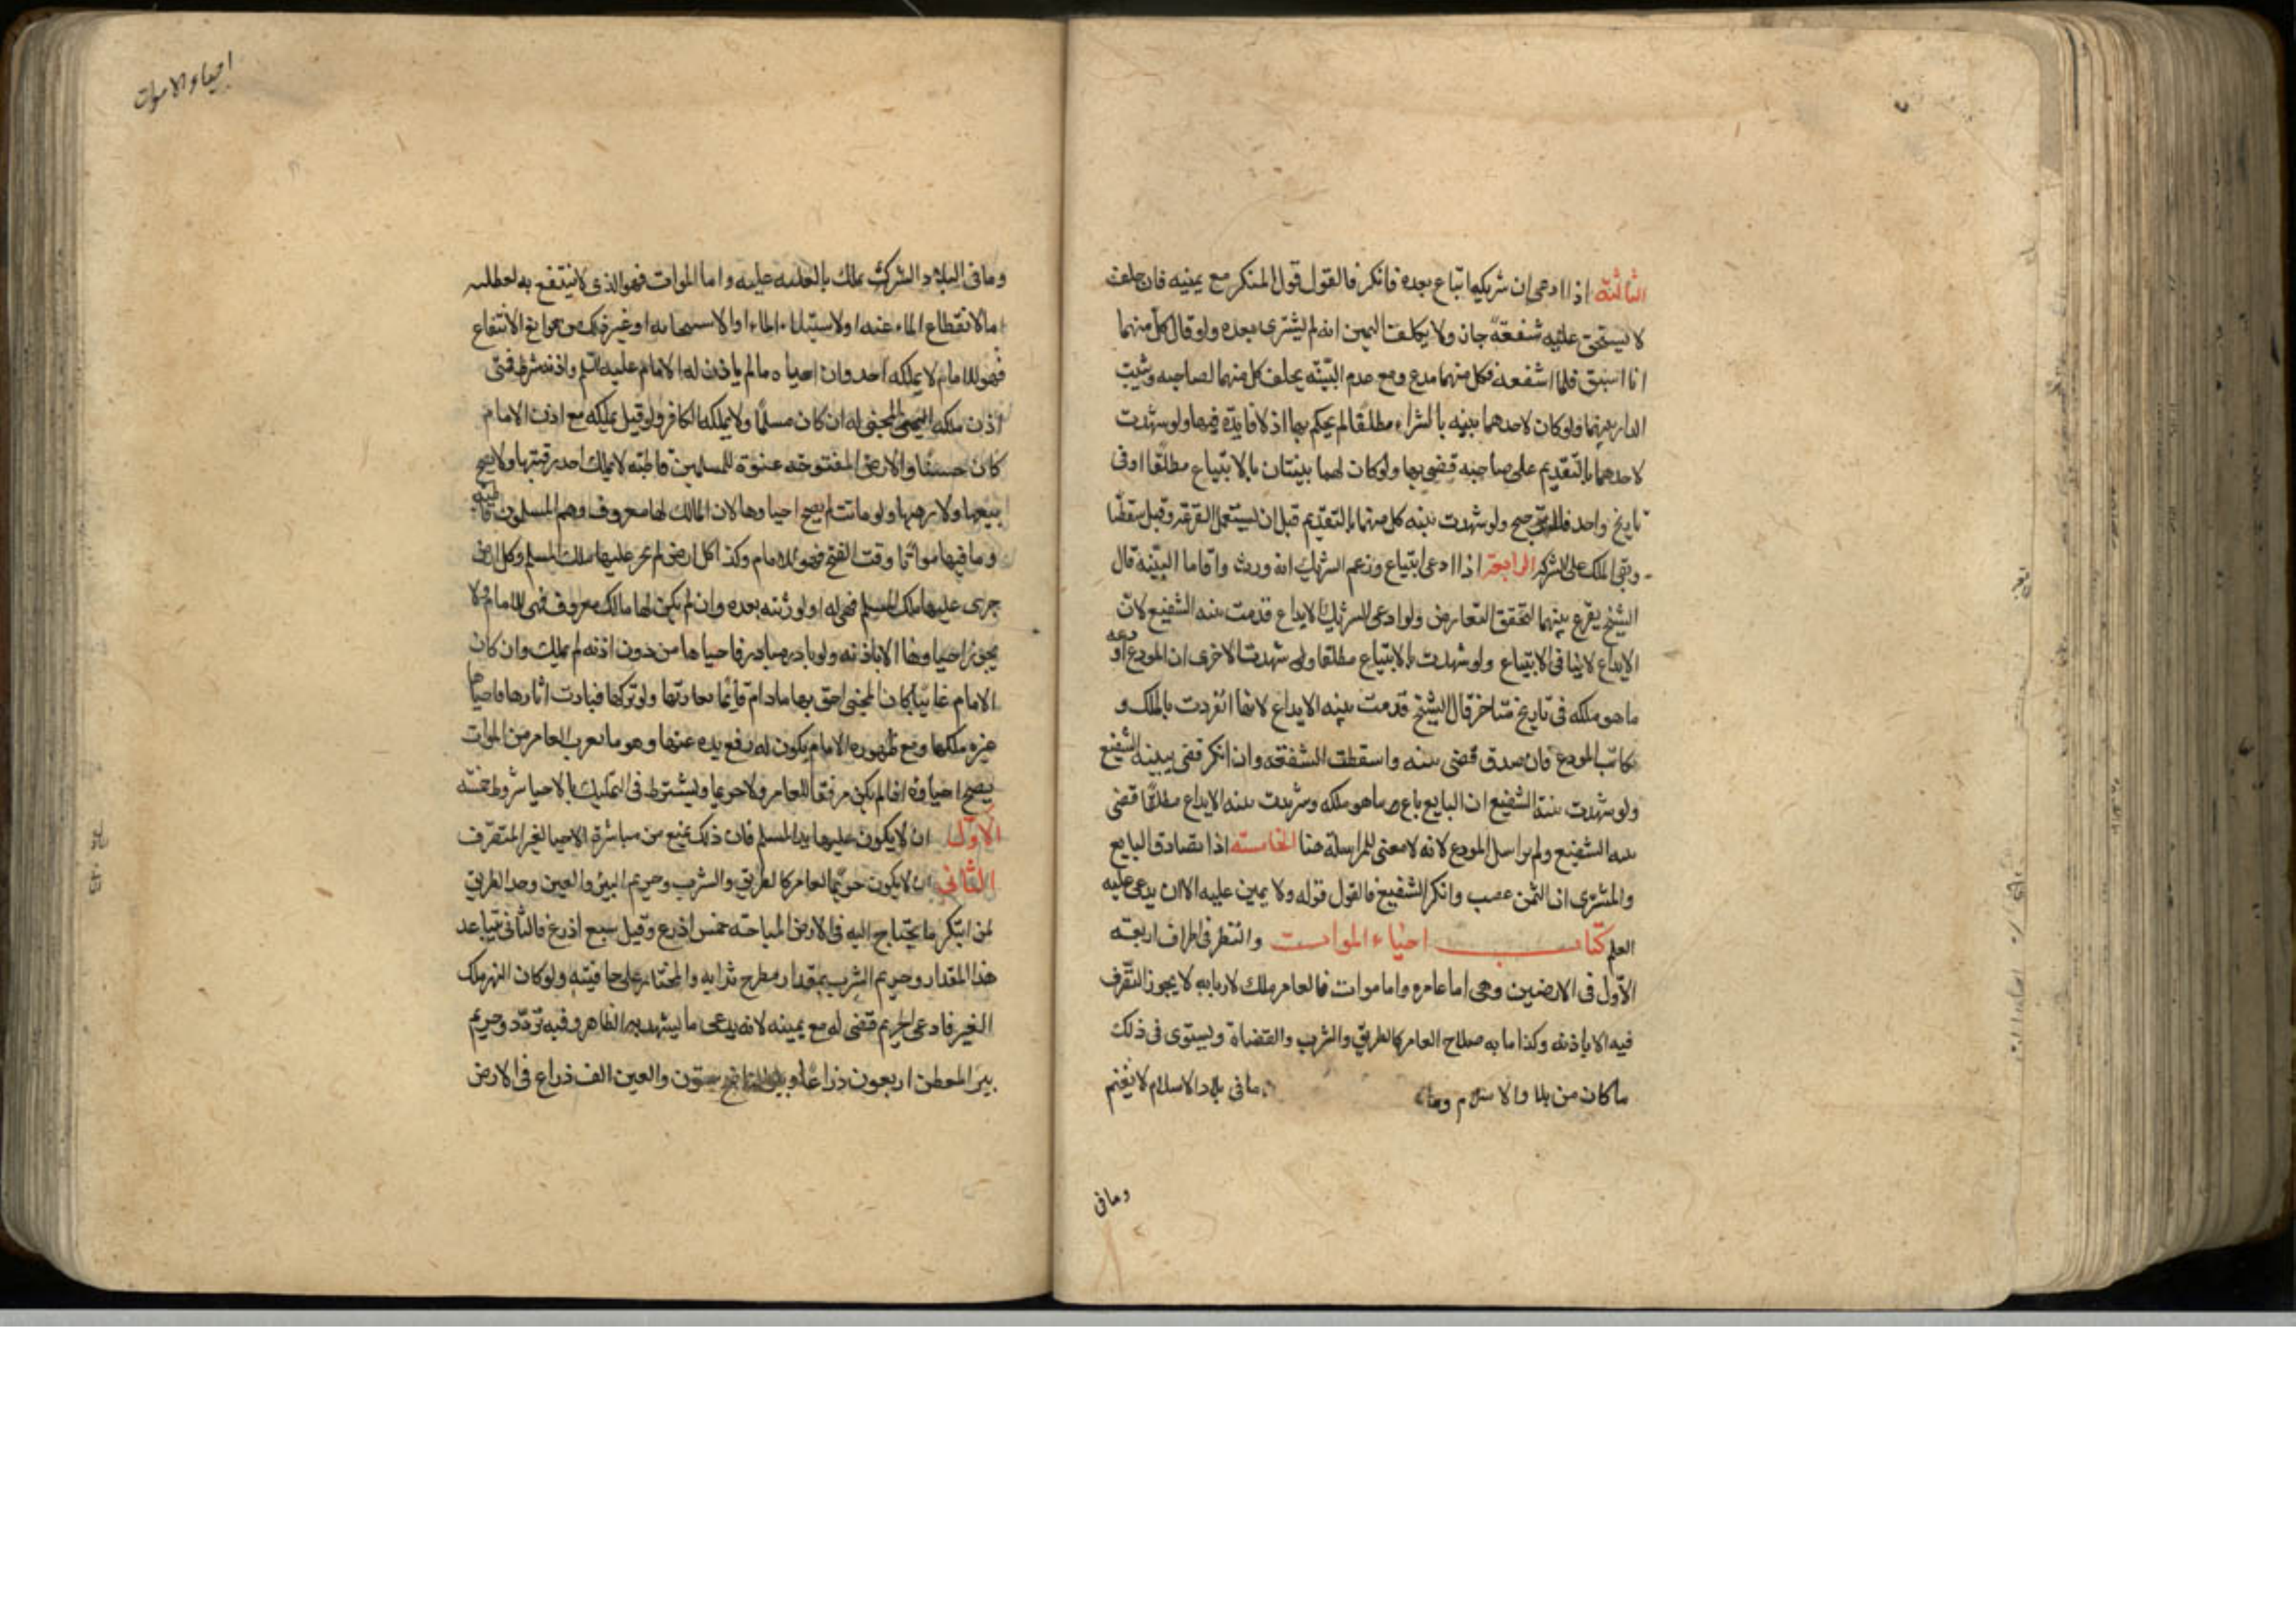 الثالثة اذا ادعى ان شريكه ابتاع بعده فانكر فالقول قول المنكر مع يمينه فان حلف
لا يستحق عليه شفعة جاز ولا يكلف اليمين انه لم يشترى بعده ولو قال كل منهما
انا اسبق فلى الشفعة فكل منهما مدع ومع عدم البينه يحلف كل منهما لصاحبه ويثبت
الدار بينهما ولو كان لاحدهما بينه بالشراء مطلقا لم يحكم بها اذ لا فايدة فيها ولو شهدت
لاحدهما بالتقديم على صاحبه قضى بها ولو كان لهما بينتان بالابتياع مطلقا او فى
تاريخ واحد فلا ترجيح ولو شهدت بينه كل منهما بالتقديم قيل ان يستعمل القرعة وقيل سقطا
وبقى الملك على الشركه الرابعة اذا ادعى ابتياع وزعم الشريك انه ورث واقاما البينه قال
الشيخ يقرع بينهما لتحقق التعارض ولو ادعى الشريك الايداع قدمت بينه الشفيع لان
الايداع لا ينافى الابتياع ولو شهدت بالابتياع مطلقا ولو شهدت الاخرى ان المودع اودعه
ما هو ملكه فى تاريخ متاخر قال الشيخ قدمت بينه الايداع لانها انفردت بالملك و
يكاتب المودع فان صدق قضى ببينه واسقطت الشفعه وان انكر قضى ببينه الشفيع
ولو شهدت بينة الشفيع ان البايع باع ما هو ملكه وشهدت بينه الايداع مطلقا قضى
ببينه الشفيع ولم يراسل المودع لانه لا معنى للمراسلة هنا الخامسة اذا تصادق البايع
والمشترى ان الثمن غصب وانكر الشفيع فالقول قوله ولا يمين عليه الا ان يدعى عليه
العلم كتاب احياء الموات والنظر فى اطراف اربعة
الاول فى الارضين وهى اما عامره واما موات فالعامر ملك لاربابه لا يجوز التصرف
فيه الا باذنه وكذا ما به صلاح العامر كالطريق والشرب والقناة ويستوى فى ذلك
ما كان من بلاد الاسلام وما ما فى بلاد الاسلام لا يغنم
وما فى
احياء الاموات
وما فى البلاد الشرك يملك بالغلبه عليه واما الموات فهو الذى لا ينتفع به لعطلته
اما لانقطاع الماء عنه او لاستيلاء الماء او الاستيجامه او غير ذلك من موانع الانتفاع
فهو للامام لا يملكه احد وان احياه ما لم ياذن له الامام عليه السلم واذنه شرط فمتى
اذن ملكه المحيى له ان كان مسلما ولا يملكها الكافر ولو قيل يملكه مع اذن الامام
كان حسنا والارض المفتوحه عنوة للمسلمين قاطبه لا يملك احد رقبتها ولا يصح
بيعها ولا رهنها ولو ماتت لم يصح احياوها لان المالك لها معروف وهم المسلمون قاطبه
وما فيها مواتا وقت الفتح فهو للامام وكذا كل ارض لم يجر عليها ملك المسلم وكل ارض
جرى عليها ملك المسلم فهى له او لورثته بعده وان لم يكن لها مالك معروف فهى للامام ولا
يجوز احياوها الا باذنه ولو بادر مبادر فاحياها من دون اذنه لم يملك وان كان
الامام غايبا كان المحيى احق بها ما دام قايما بعمارتها ولو تركها فبادت اثارها فاحياها
غيره ملكها ومع ظهوره الامام يكون له رفع يده عنها وهو ما بقرب العامر من الموات
يصح احياوه اذا لم يكن مرفقا للعامر ولا حريما ويشترط فى التمليك بالاحيا شروط خمسه
الاول ان لا يكون عليها يد المسلم فان ذلك يمنع من مباشرة الاحيا لغير المتصرف
الثانى ان لا يكون حريما لعامر كالطريق والشرب وحريم البير والعين وحد الطريق
لمن ابتكر ما يحتاج اليه فى الارض المباحة خمس اذرع وقيل سبع اذرع فالثانى يتباعد
هذا المقدار وحريم الشرب بمقدار مطرح ترابه والمجتاز على حافيته ولو كان النهر ملك
الغير فادعى الحريم قضى له مع يمينه لانه يدعى ما يشهد به الظاهر وفيه تردد وحريم
بير المعطن اربعون ذراعا وبير الناضح ستون والعين الف ذراع فى الارض